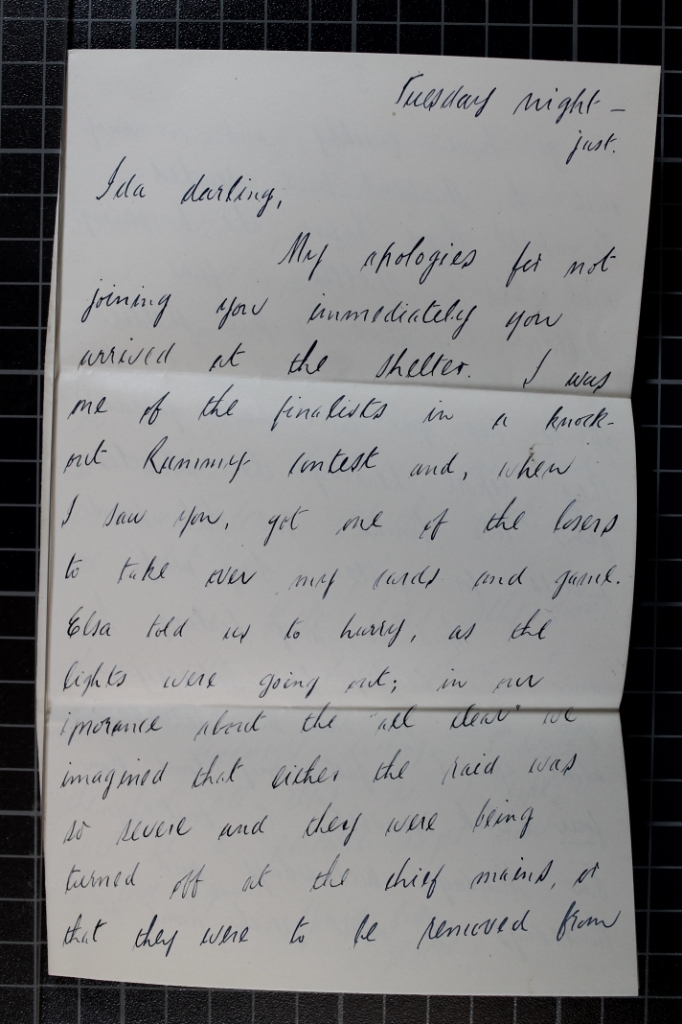 Tuesday night —
just.
Ida darling,
My apologies for not
joining you immediately you
arrived at the shelter. I was
one of the finalists in a knock-
out Rummy contest and, when
I saw you, got one of the losers
to take over my cards and game.
Elsa told us to hurry, as the
lights were going out; in our
ignorance about the "all clear" we
imagined that either the raid was
so severe and they were being
turned off at the chief mains, or
that they were to be removed from